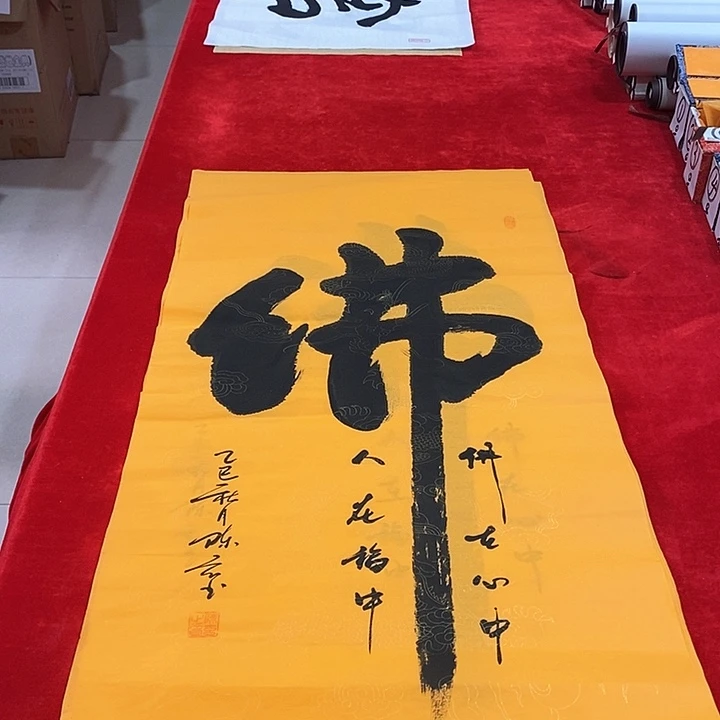 佛
佛在心中
人在福中
乙巳秋月